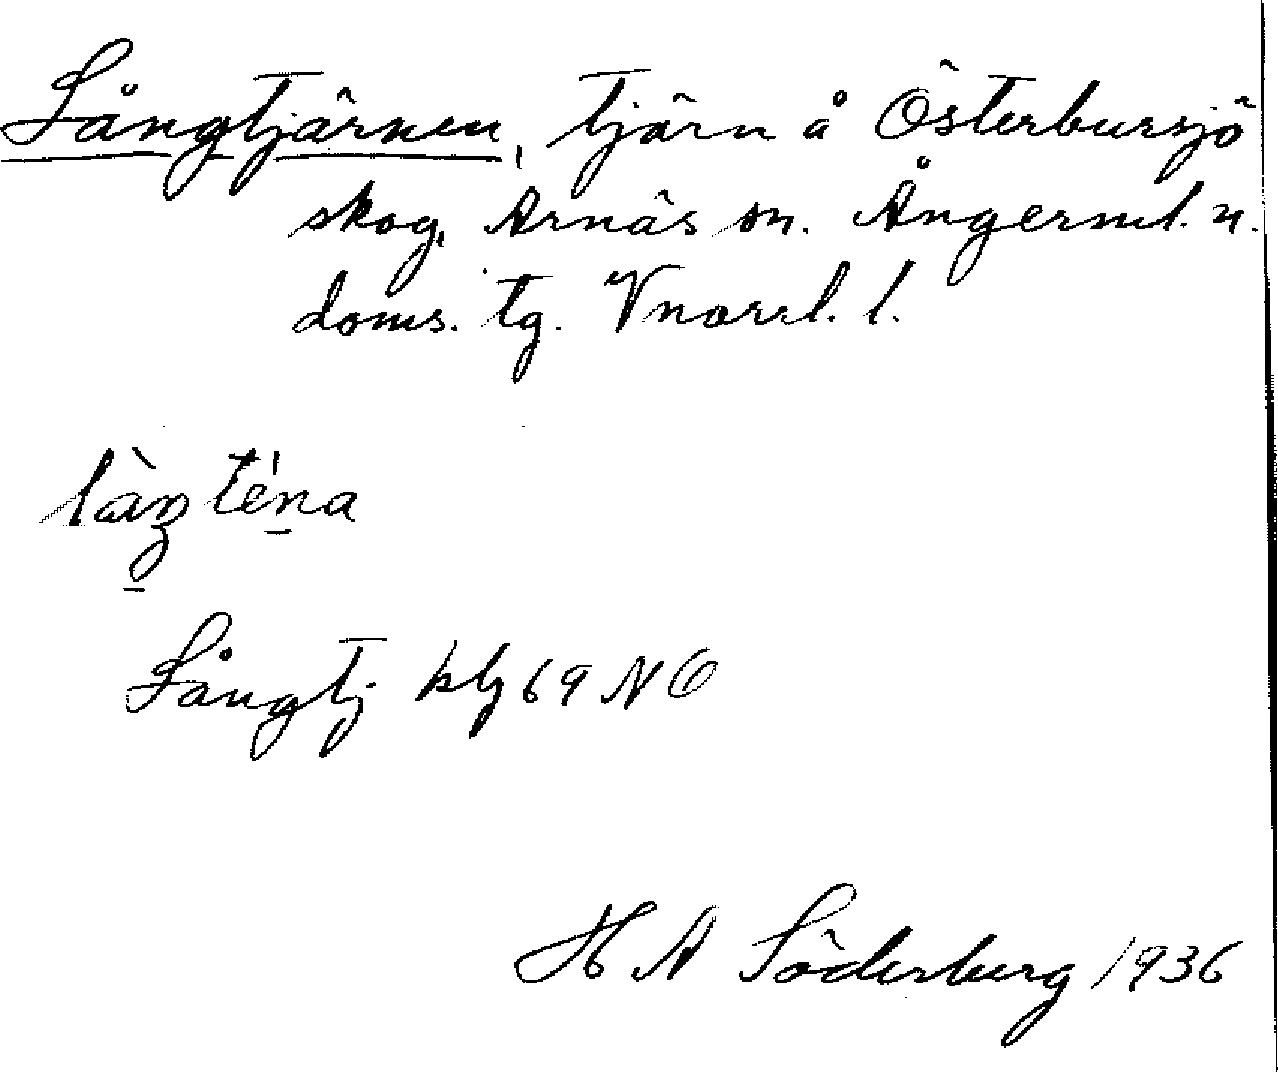 Långtjärnen, tjärn å Östersbursjö
skog, Arnäs sn. Ångerml. n.
doms. tg. Vnorrl. l.
Långtj. blz 69 NO
H A Söderberg 1936